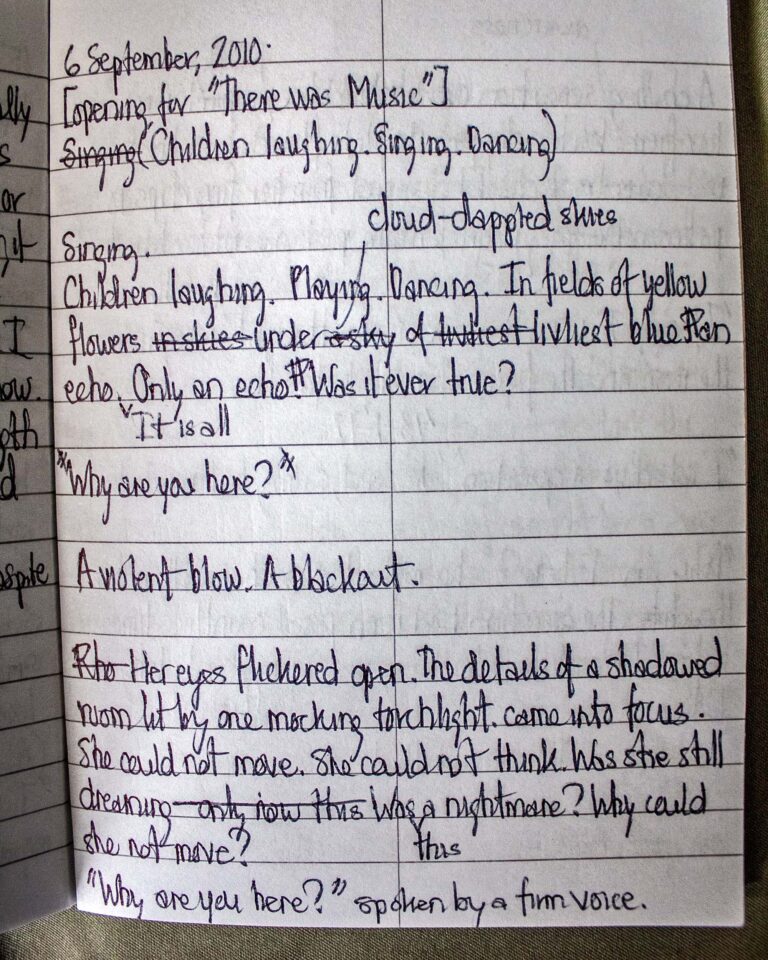 ally
s
or
I
ow.
oth
d
ospite
6 September, 2010.
[opening for "There was Music"]
Singing (Children laughing. Singing. Dancing)
cloud-dappled skies
Singing.
Children laughing. Playing. Dancing. In fields of yellow
flowers in skies under a sky of livliest livliest blue. An
echo. Only an echo. Was it ever true?
It is all
"Why are you here?"
A violent blow. A blackout.
Rho Her eyes flickered open. The details of a shadowed
room lit by one mocking torchlight. came into focus.
She could not move. She could not think. Was she still
dreaming only now this Was a nightmare? Why could
she not move?
this
"Why are you here?" spoken by a firm voice.